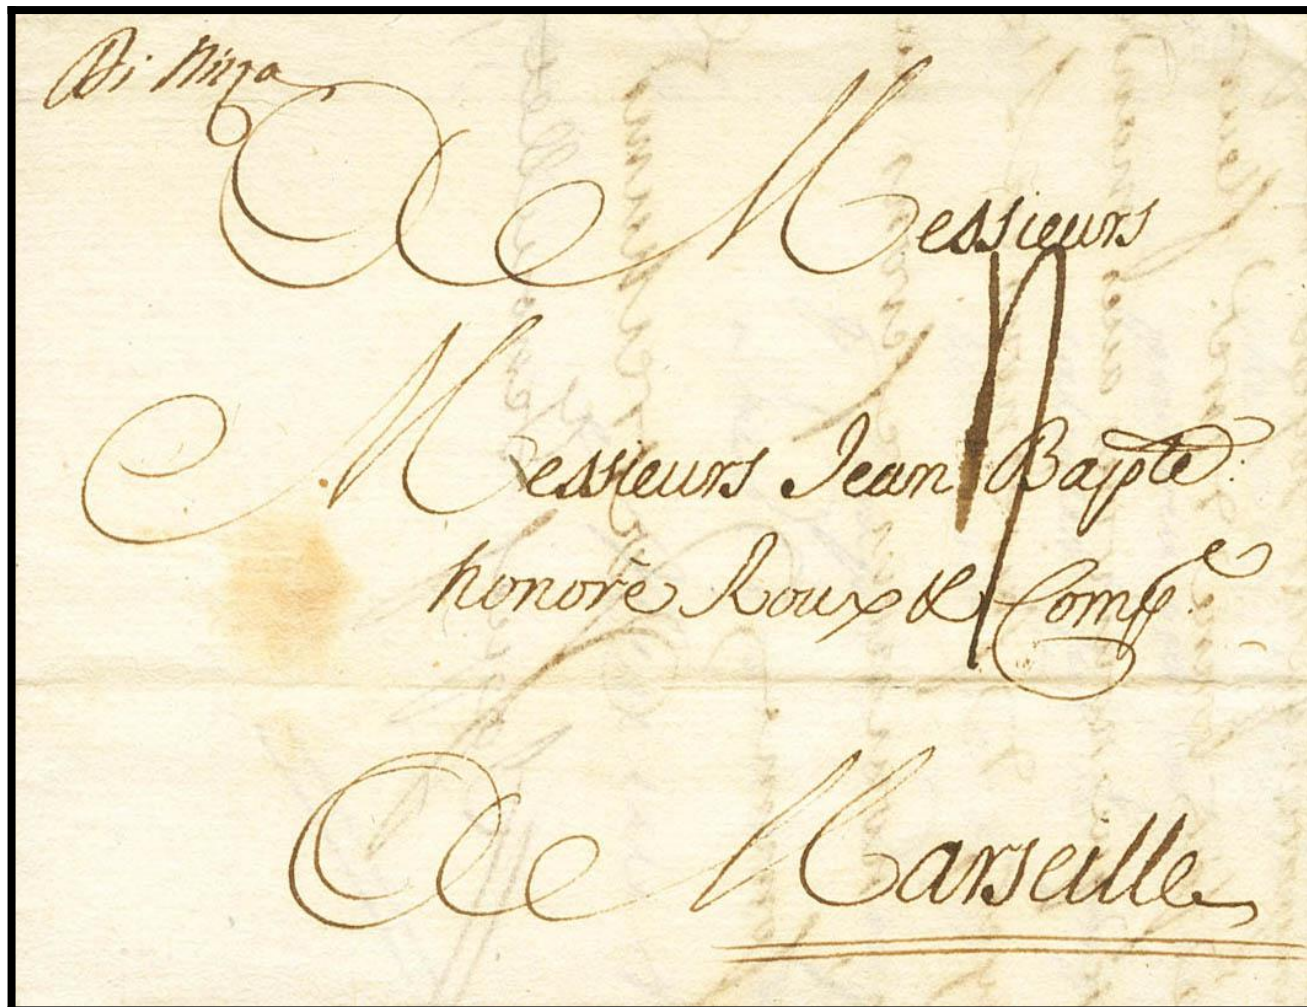 Di Nizza
A Messieurs
Messieurs Jean Bapte:
honorè Roux & Compe.
A Marseille